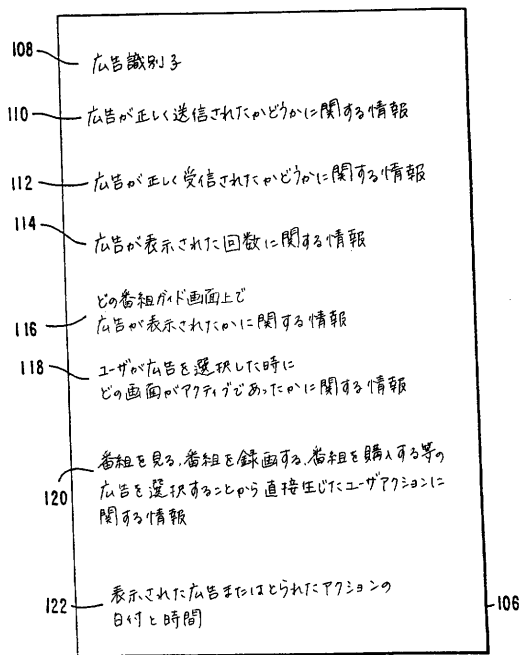 108 広告識別子
110 広告が正しく送信されたかどうかに関する情報
112 広告が正しく受信されたかどうかに関する情報
114 広告が表示された回数に関する情報
どの番組ガイド画面上で
116 広告が表示されたかに関する情報
118 ユーザが広告を選択した時に
どの画面がアクティブであったかに関する情報
番組を見る、番組を録画する、番組を購入する等の
120 広告を選択することから直接生じたユーザアクションに
関する情報
122 表示された広告またはとられたアクションの 106
日付と時間